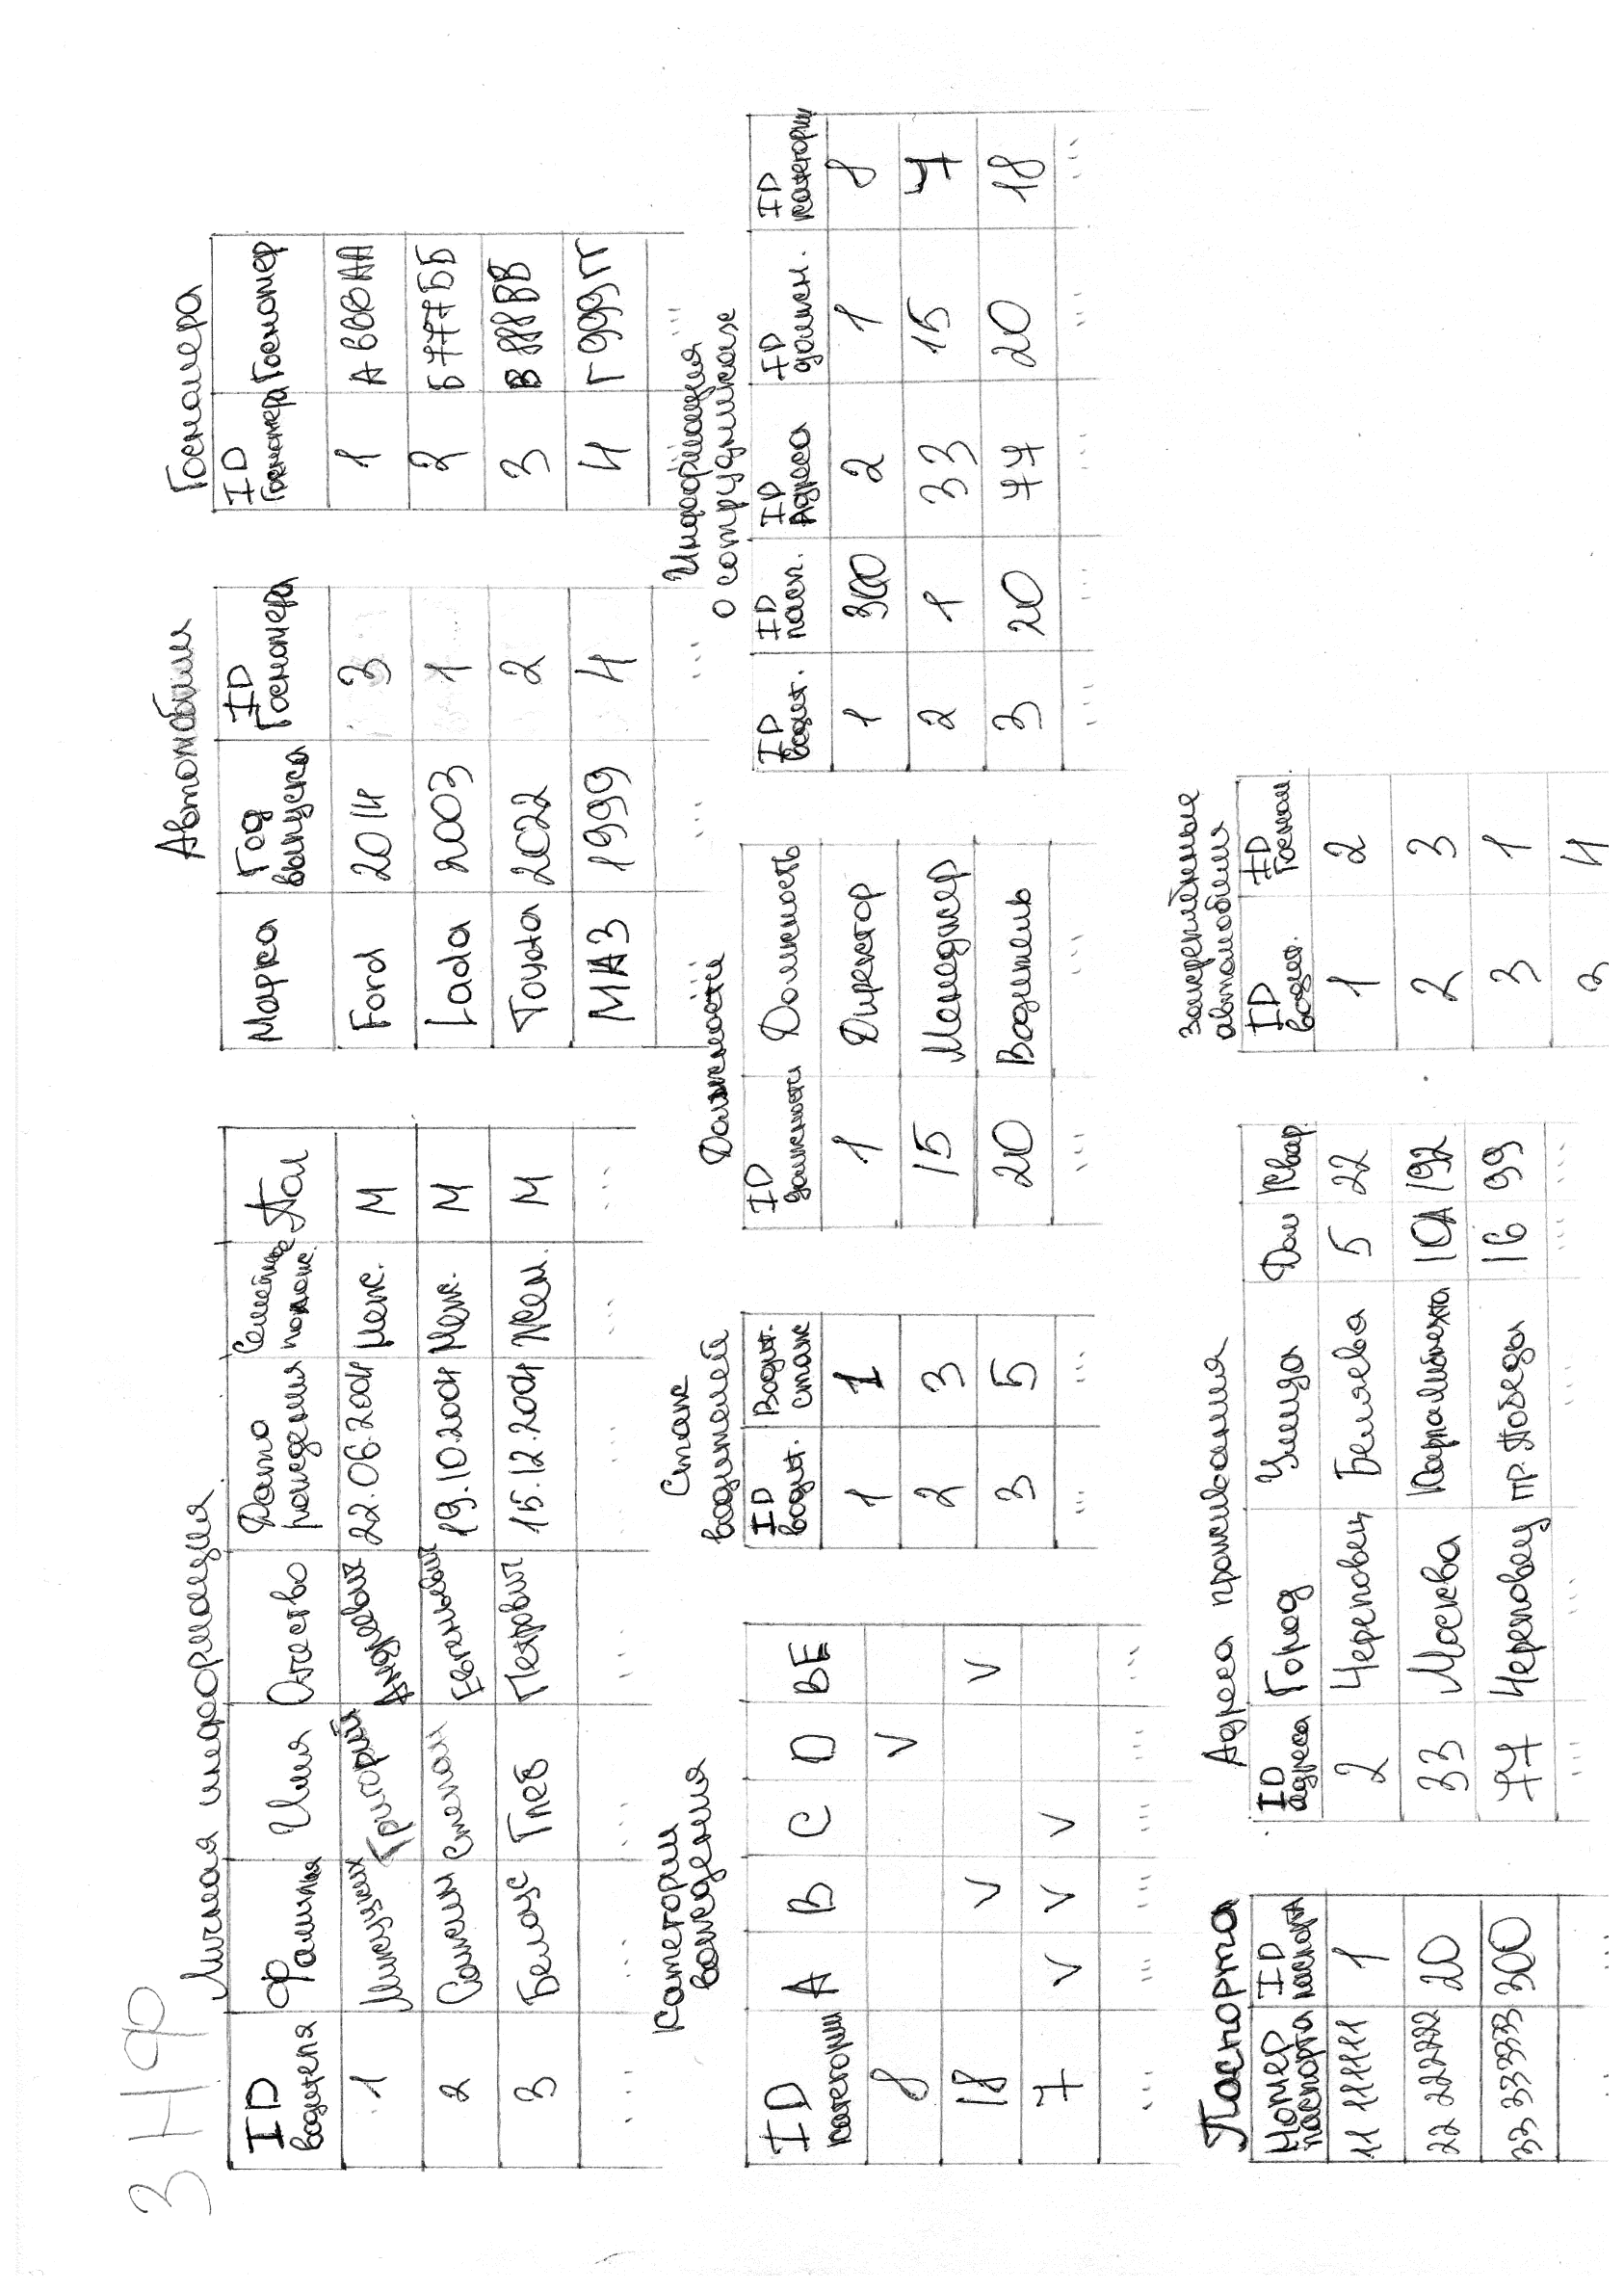 3НФ
Личная информация
ID водителя Фамилия Имя Отчество Дата рождения Семейное полож. Пол
1 Григорий Андреевич 22.06.2004 Неж. М
2 Самсин Степан Евгеньевич 19.10.2004 Неж. М
3 Белоус Глеб Петрович 15.12.2004 Жен. М
... ... ... ... ... ... ...
Автомобили
Марка Год выпуска ID Госномера
Ford 2014 3
Lada 2003 1
Toyota 2022 2
МАЗ 1999 4
... ... ...
Госномера
ID Госномера Госномер
1 А666АА
2 Б777ББ
3 В888ВВ
4 Г999ГГ
... ...
Категории вождения
ID категории A B C D BE
8 V
18 V V
7 V V V
... ... ... ... ... ...
Стаж водителей
ID водит. Водит. стаж
1 1
2 3
3 5
... ...
Должности
ID должности Должность
1 Директор
15 Менеджер
20 Водитель
... ...
Информация о сотрудниках
ID водит. ID пасп. ID Адреса ID должн. ID категории
1 300 2 1 8
2 1 33 15 7
3 20 77 20 18
... ... ... ... ...
Паспорта
Номер паспорта ID паспорта
11 111111 1
22 222222 20
33 33333 300
... ...
Адреса проживания
ID адреса Город Улица Дом Квар
2 Череповец Беляева 5 22
33 Москва 10А 192
77 Череповец пр. Победы 16 99
... ... ... ... ...
Закреплённые автомобили
ID водит. ID Госном.
1 2
2 3
3 1
3 4